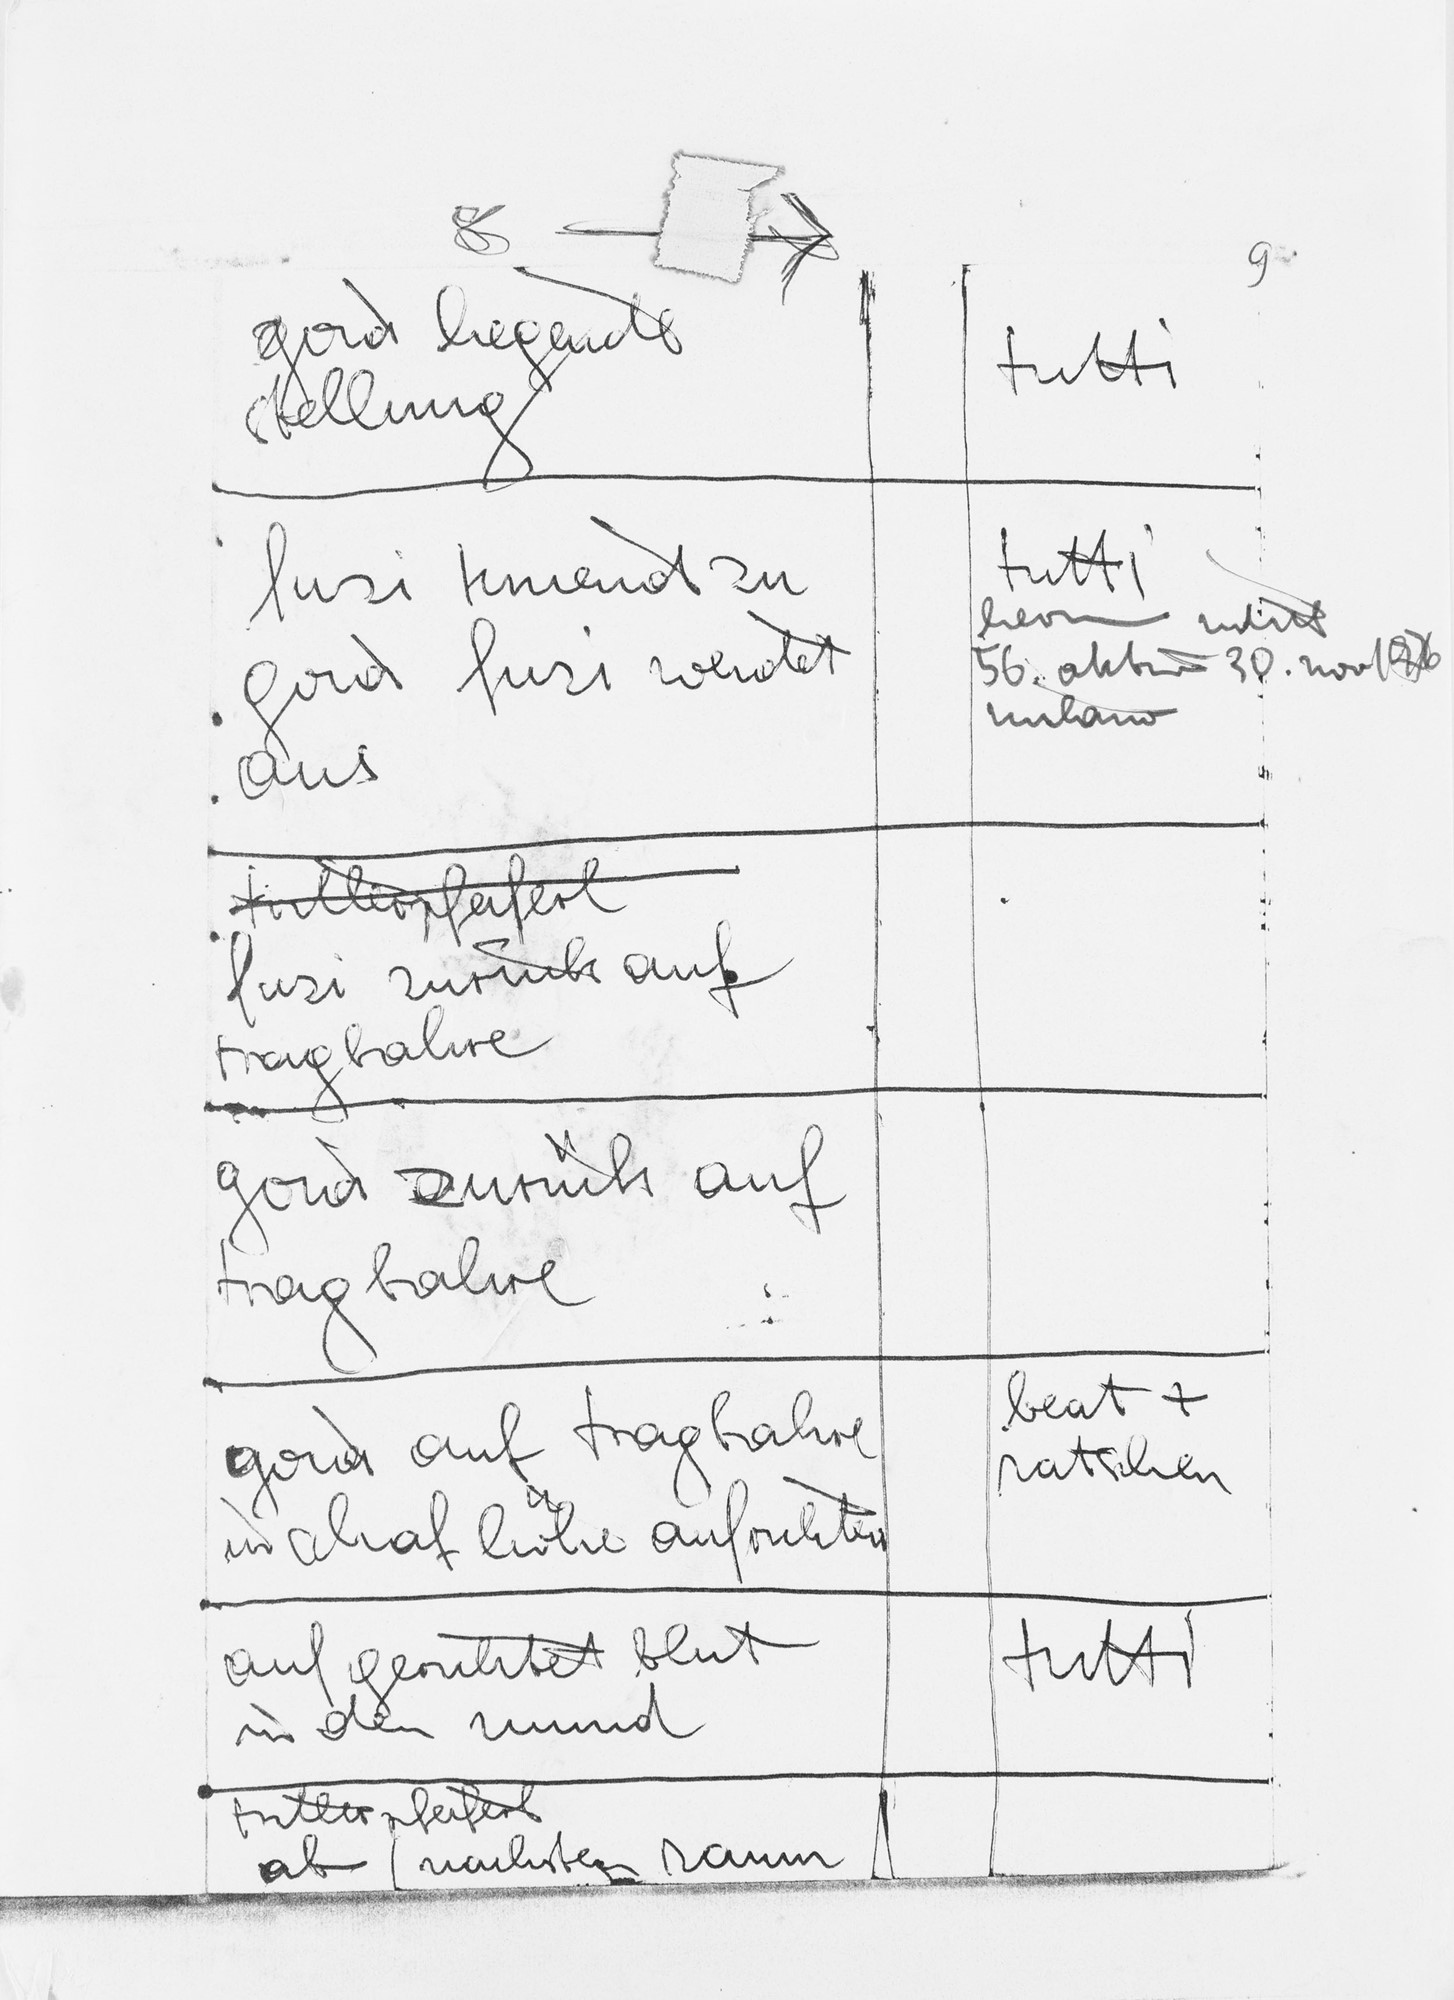 8
9
gerd liegende
stellung
tutti
susi kniend zu
gerd susi weidet
aus
tutti
hermann nitsch
56. aktion 30. nov 1976
milano
trillerpfeiferl
susi zurück auf
tragbahre
gerd zurück auf
tragbahre
gerd auf tragbahre
in schaf höhe aufrichten
beat +
ratschen
aufgerichtet blut
in den mund
tutti
trillerpfeiferl
ab nächsten raum